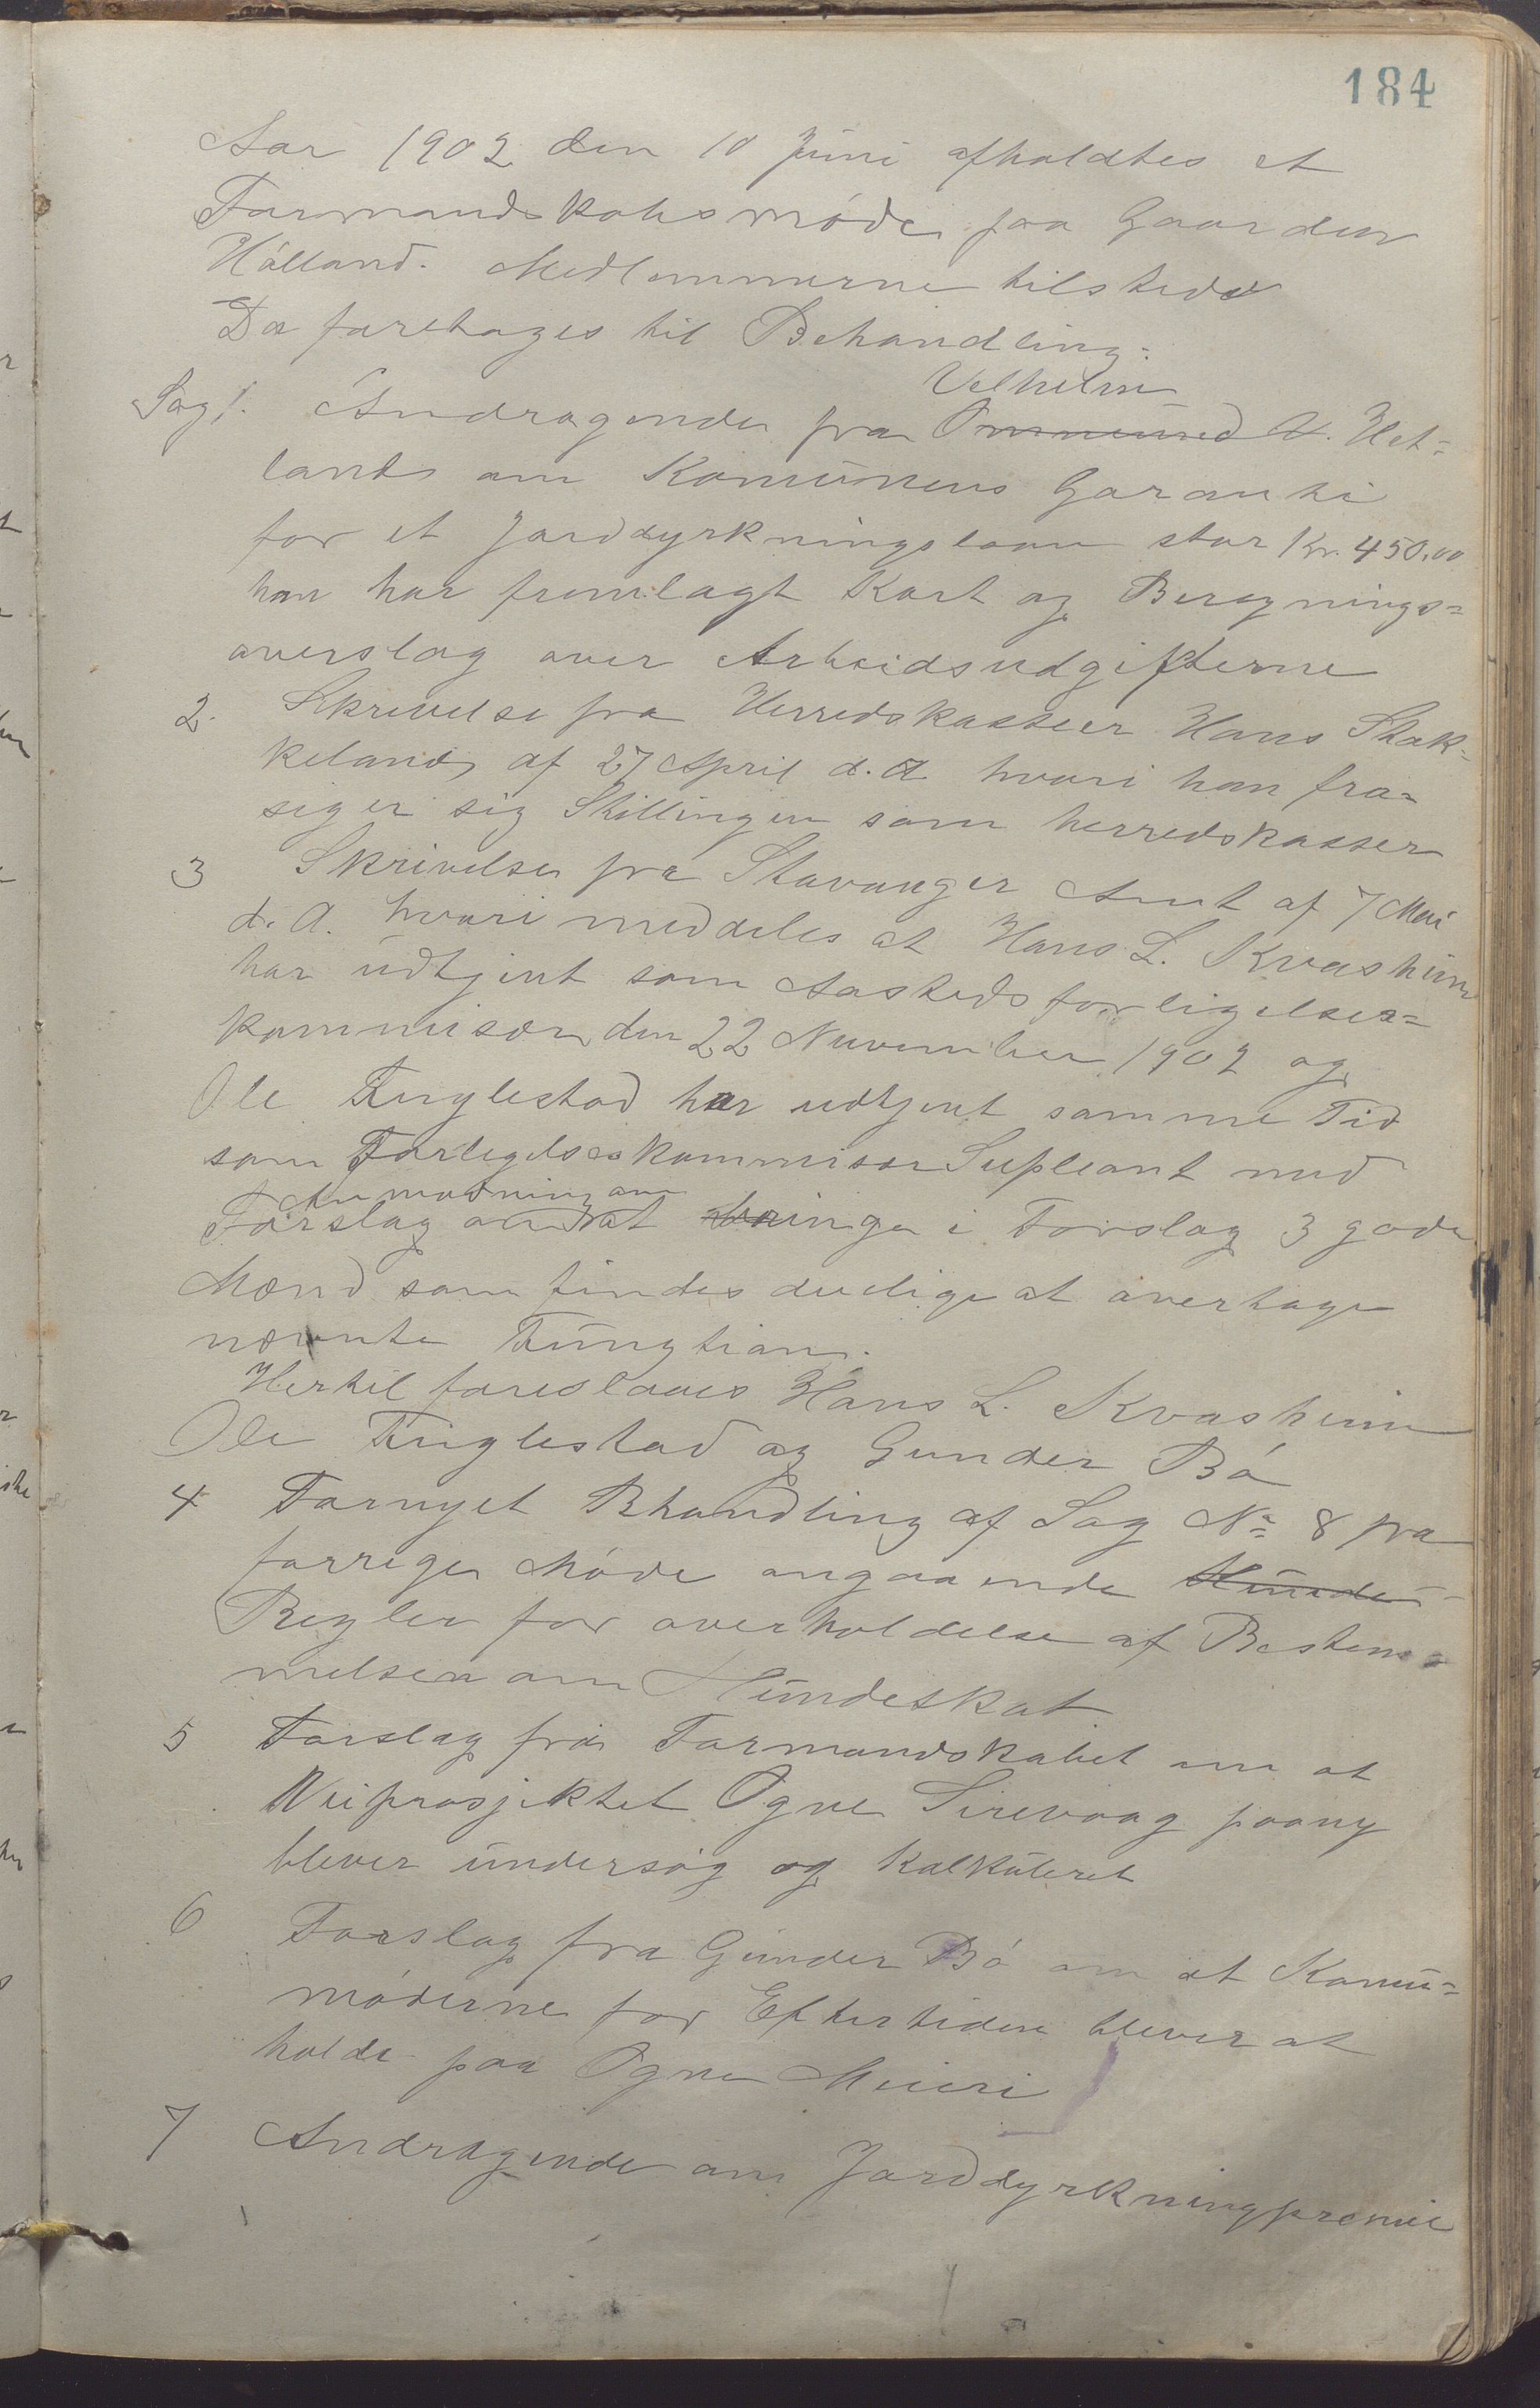 184
Aar 1902 den 10 Juni afholdtes et
Formandskabsmøde paa Gaarden
Hålland. Medlemmerne tilstede
Da foretoges til Behandling:
Velhelm
Sag 1. Andragende fra Ommund A. Het=
lands om Komunens Garanti
for et Jorddyrkningslaan stor Kr. 450,00
han har fremlagt Kart og Beregnings=
overslag over Arbeidsudgifterne
2. Skrivelse fra Herredskasseer Hans Stok=
keland, af 27 April d.A hvori han fra=
siger sig Stillingen som herredskasser
3 Skrivelse fra Stavanger Amt af 7 Mai
d. A. hvori meddeles at Hans L. Kvasheim
har udtjent som Aastedsforligelses=
kommisær den 22 November 1902 og
Ole Fuglestad har udtjent samme Tid
som Forligelseskommisær Supleant med
Anmodning om
Forslag om at bringe i Forslag 3 gode
Mænd som findes duelige at overtage
nævnte Fungtion.
Hertil foreslaaes Hans L. Kvasheim
Ole Fuglestad og Gunder Bø
4 Fornyet Bhandling af Sag No 8 fra
forrige Møde angaaende Hunde-
Regler for overholdelse af Bestem=
melsen om Hundeskat
5 Forslag fra Formandskabet om at
Veiprosjektet Ogne Sirevaag paany
blever undersøg og kalkuleret
6 Forslag fra Gunder Bø om at Komu=
møderne for Eftertiden blever at
holde paa Ogne Meieri
7 Andragende om Jorddyrkningpremie